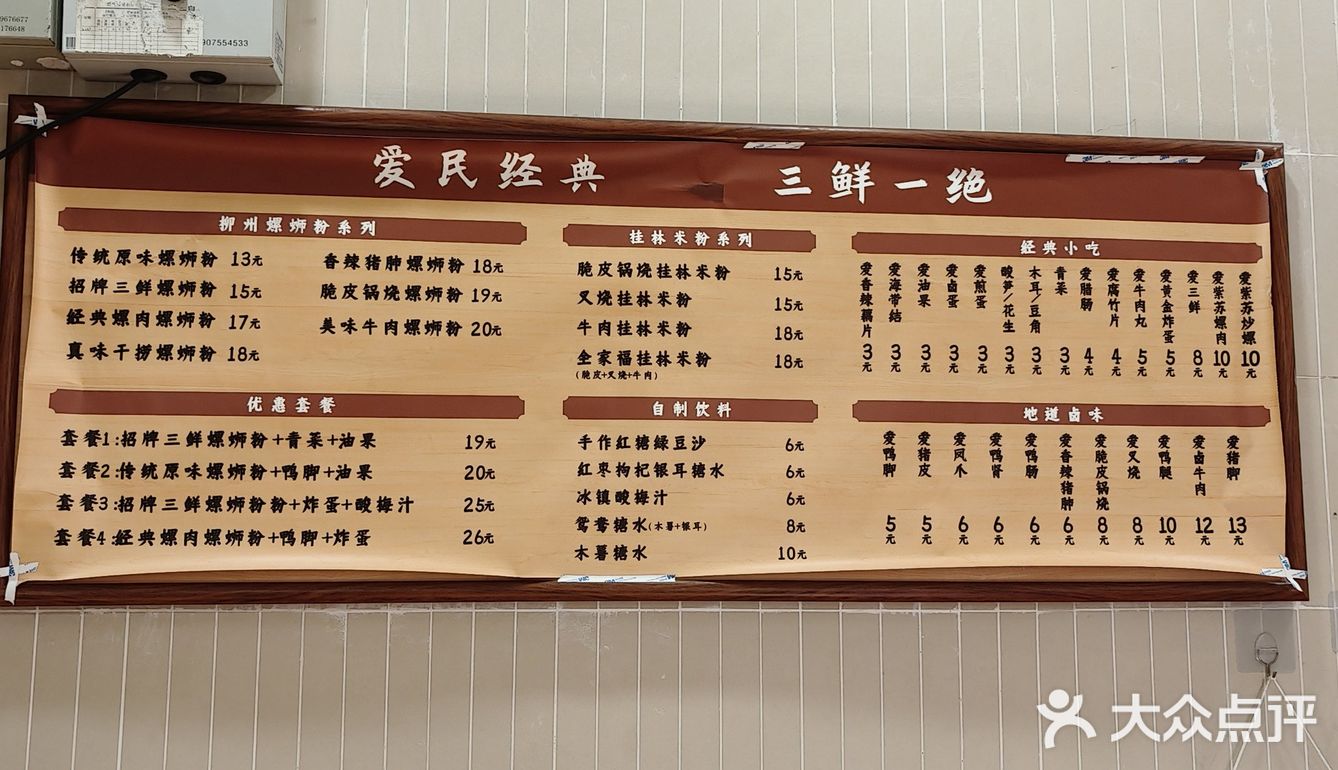 9676677
176648
907554533
爱民经典 三鲜一绝
柳州螺蛳粉系列
传统原味螺蛳粉 13元
招牌三鲜螺蛳粉 15元
经典螺肉螺蛳粉 17元
真味干捞螺蛳粉 18元
香辣猪肿螺蛳粉 18元
脆皮锅烧螺蛳粉 19元
美味牛肉螺蛳粉 20元
优惠套餐
套餐1:招牌三鲜螺蛳粉+青菜+油果 19元
套餐2:传统原味螺蛳粉+鸭脚+油果 20元
套餐3:招牌三鲜螺蛳粉粉+炸蛋+酸梅汁 25元
套餐4:经典螺肉螺蛳粉+鸭脚+炸蛋 26元
桂林米粉系列
脆皮锅烧桂林米粉 15元
叉烧桂林米粉 15元
牛肉桂林米粉 18元
全家福桂林米粉 18元
(脆皮+叉烧+牛肉)
自制饮料
手作红糖绿豆沙 6元
红枣枸杞银耳糖水 6元
冰镇酸梅汁 6元
鸳鸯糖水(木薯+银耳) 8元
木薯糖水 10元
经典小吃
爱香辣藕片 3元
爱海带结 3元
爱油果 3元
爱卤蛋 3元
爱煎蛋 3元
酸笋/花生 3元
木耳/豆角 3元
青菜 3元
爱腊肠 4元
爱腐竹片 4元
爱牛肉丸 5元
爱黄金炸蛋 5元
爱三鲜 8元
爱紫苏螺肉 10元
爱紫苏炒螺 10元
地道卤味
爱鸭脚 5元
爱猪皮 5元
爱凤爪 6元
爱鸭肾 6元
爱鸭肠 6元
爱香辣猪肿 6元
爱脆皮锅烧 8元
爱叉烧 8元
爱鸭腿 10元
爱卤牛肉 12元
爱猪脚 13元
大众点评